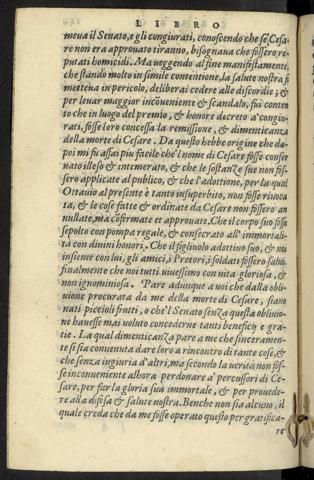 LIBRO
meua il Senato, e gli congiurati, conoscendo che se Cesa-
re non era approuato tiranno, bisognaua che fossero re-
putati homicidi. Ma ueggendo al fine manifestamente,
che stando molto in simile contentione, la salute nostra si
metteua in pericolo, deliberai cedere alle discordie; &
per leuar maggior incōueniente & scandalo, fui conten
to che in luogo del premio, & honore decreto a' congiu-
rati, fosse loro concessa la remissione, & dimenticanza
della morte di Cesare. Da questo hebbe origine che da-
poi mi fu assai piu facile che'l nome di Cesare fosse conser
uato illeso & intemerato, & che le sostanze sue non fos-
sero applicate al publico, & che l'adottione, per la qual
Ottauio al presente è tanto insuperbito, non fosse riuoca
ta, & le cose fatte & ordinate da Cesare non fossero an
nullate, ma cōfirmate et approuate. Che il corpo suo fosse
sepolto con pompa regale, & consecrato all'immortali-
ta con diuini honori. Che il figliuolo adottiuo suo, & noi
insieme con lui, gli amici, i Pretori, i soldati fossero salui:
finalmente che noi tutti uiuessimo con uita gloriosa, &
non ignominiosa. Pare adunque a uoi che dalla obli-
uione procurata da me della morte di Cesare, siano
nati piccioli frutti, o che'l Senato senza questa obliuio-
ne hauesse mai uoluto concederne tanti beneficij e gra-
tie. La qual dimenticanza pare a me che sinceramen-
te si sia conuenuta dare loro a rincontro di tante cose, &
che senza ingiuria d'altri, ma secondo la uerità non fos-
se inconueniente alhora perdonare a' percussori di Ce-
sare, per far la gloria sua immortale, & per prouede-
re alla difesa & salute nostra. Benche non sia alcuno, il
quale creda che da me fosse operato questo per gratifica-
re